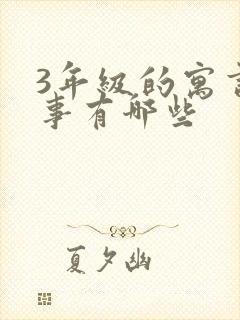 3年级的寓言
事有哪些
夏夕幽